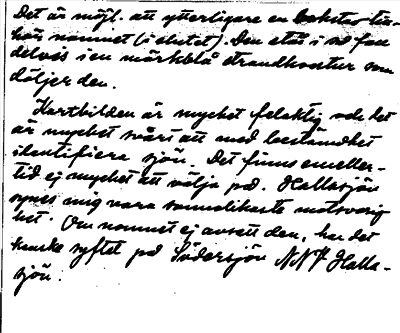 Det är möjl. att ytterligare en bokstav till-
hör namnet (i slutet). Den står i så fall
delvis i en mörkblå strandkontur som
döljer den.
Kartbilden är mycket felaktig och det
är mycket svårt att med bestämdhet
identifiera sjön. Det finns emeller-
tid ej mycket att välja på. Hallasjön
synes mig vara sannolikaste motsvarig-
het. Om namnet ej avsett den, har det
kanske syftet på Södersjön NNV Halla-
sjön.